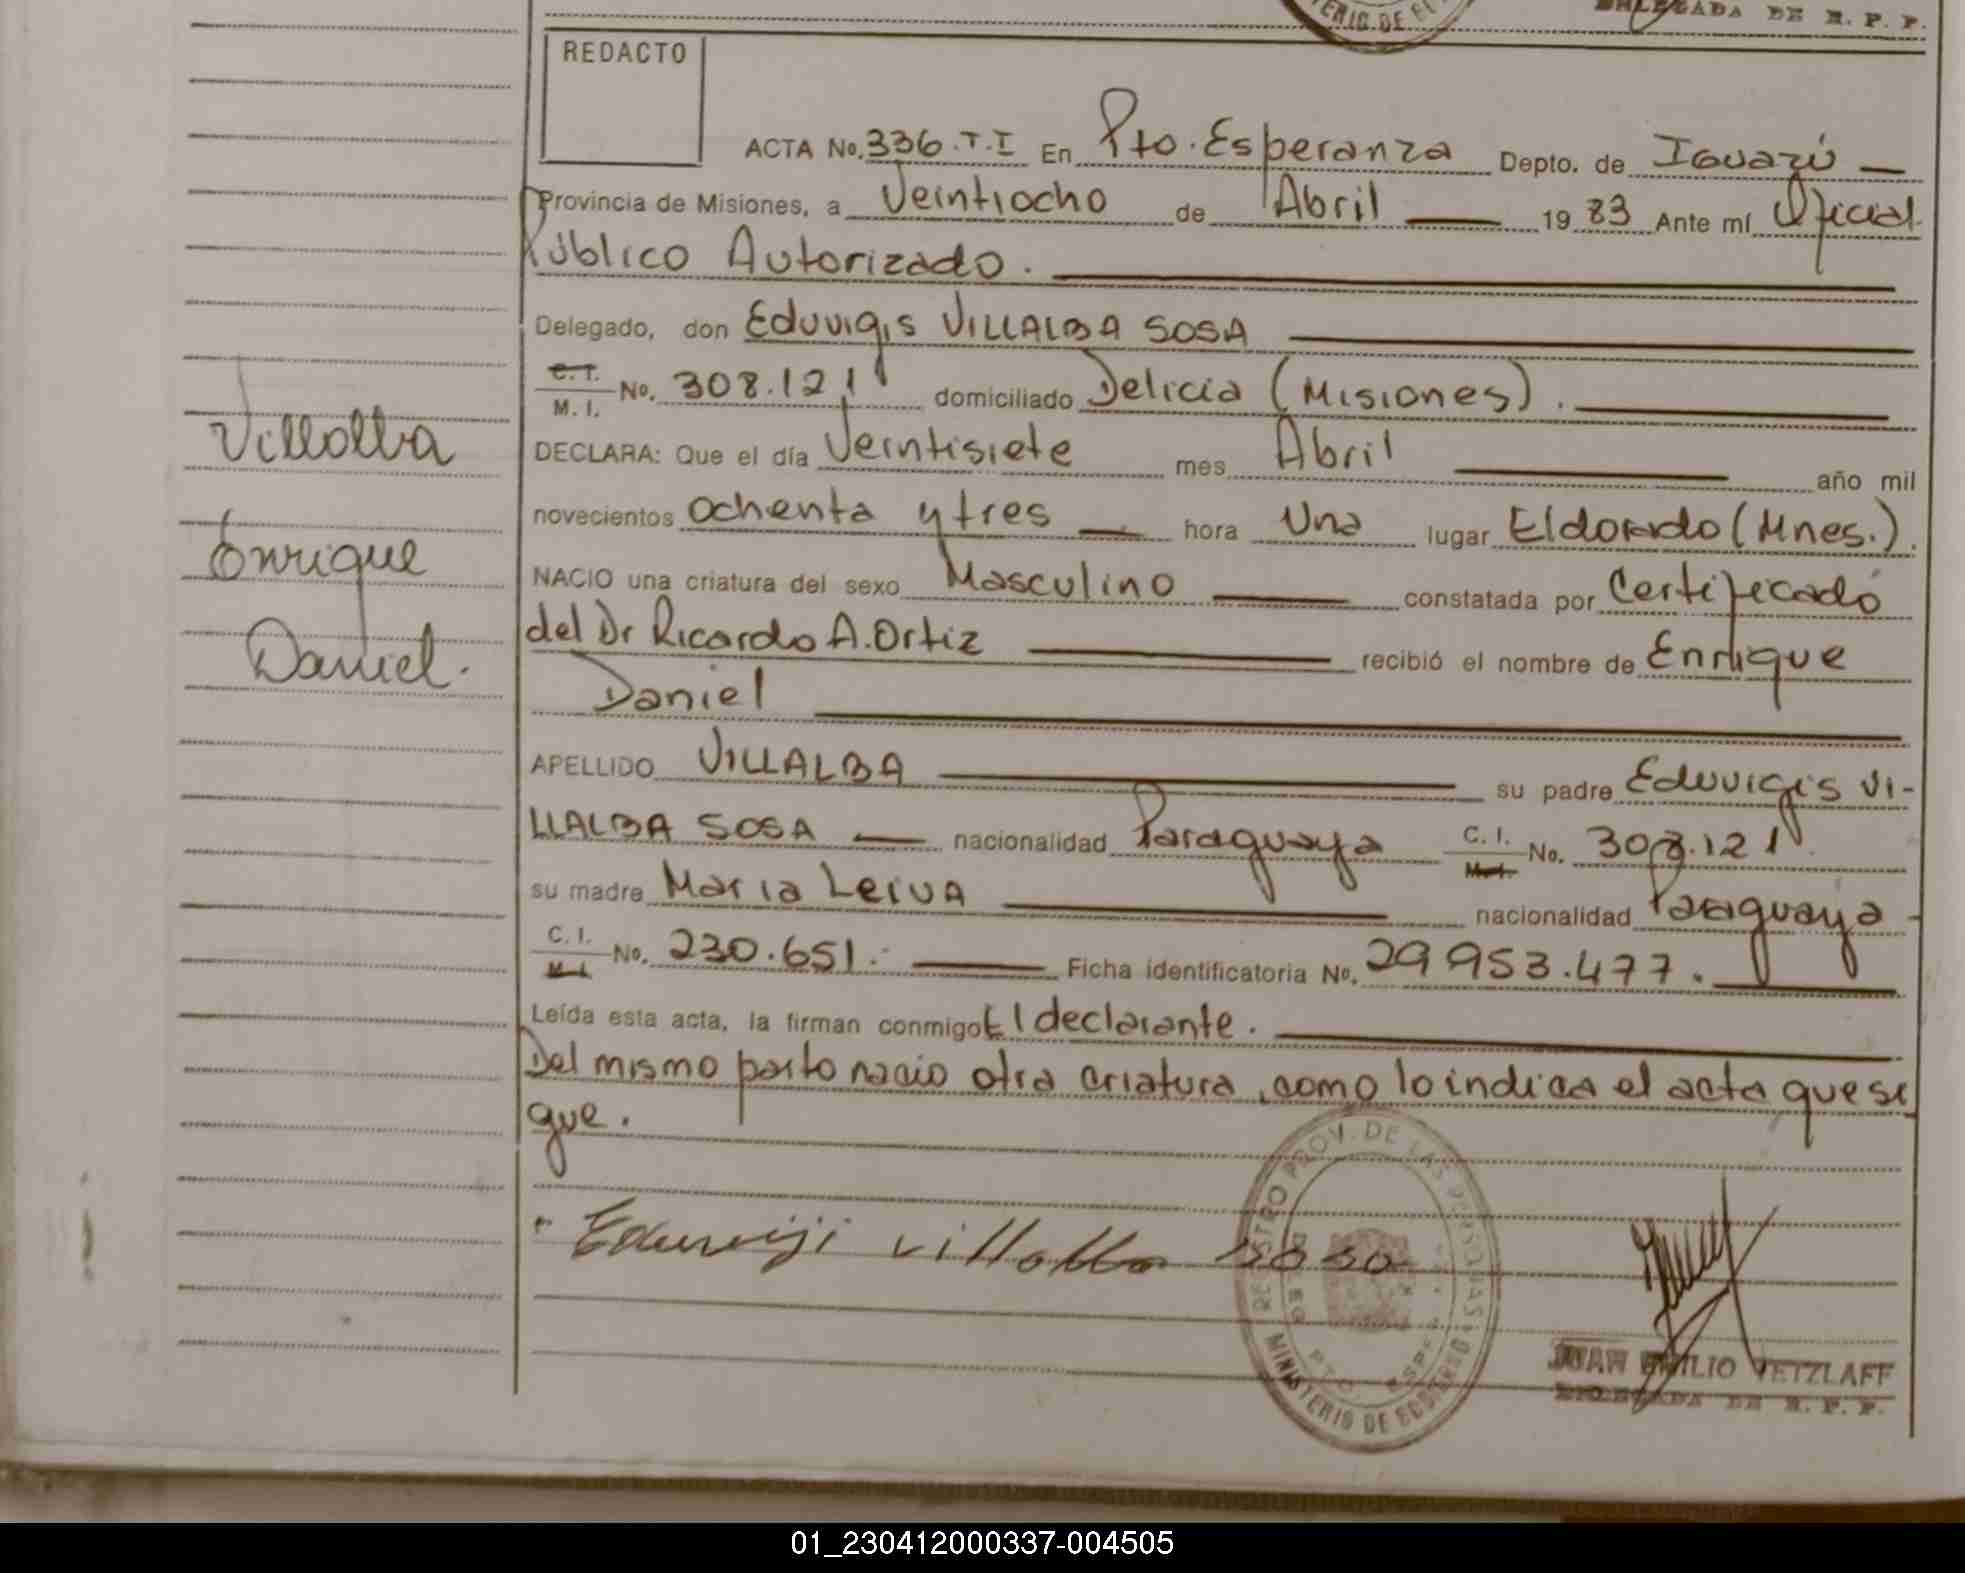 DELEGADA DE R. P. P.
REDACTO
ACTA No. 336.T.I En Pto. Esperanza Depto. de Iguazú
Provincia de Misiones, a Veintiocho de Abril 1983 Ante mí Oficial
Público Autorizado.
Delegado, don Eduvigis VILLALBA SOSA
C.I. M.I. No. 308.121 domiciliado Delicia (Misiones).
DECLARA: Que el día Veintisiete mes Abril año mil
novecientos ochenta y tres hora Una lugar Eldorado (Mnes.).
NACIO una criatura del sexo Masculino constatada por Certificado
del Dr Ricardo A. Ortiz recibió el nombre de Enrique
Daniel
APELLIDO VILLALBA su padre Eduvigis VI-
LLALBA SOSA nacionalidad Paraguaya C.I. M.I. No. 308.121
su madre Maria Leiva nacionalidad Paraguaya -
C.I. M.I. No. 230.651. Ficha identificatoria No. 29 953.477.
Leída esta acta, la firman conmigo El declarante.
Del mismo parto nacio otra criatura, como lo indica el acta que si
gue.
Villalba
Enrique
Daniel.
Eduvigi villalba soso
REGISTRO PROV. DE LAS PERSONAS
MINISTERIO DE GOBIERNO
PTO. ESP
JUAN EMILIO VETZLAFF
DELEGADA DE R. P. P.
01_230412000337-004505